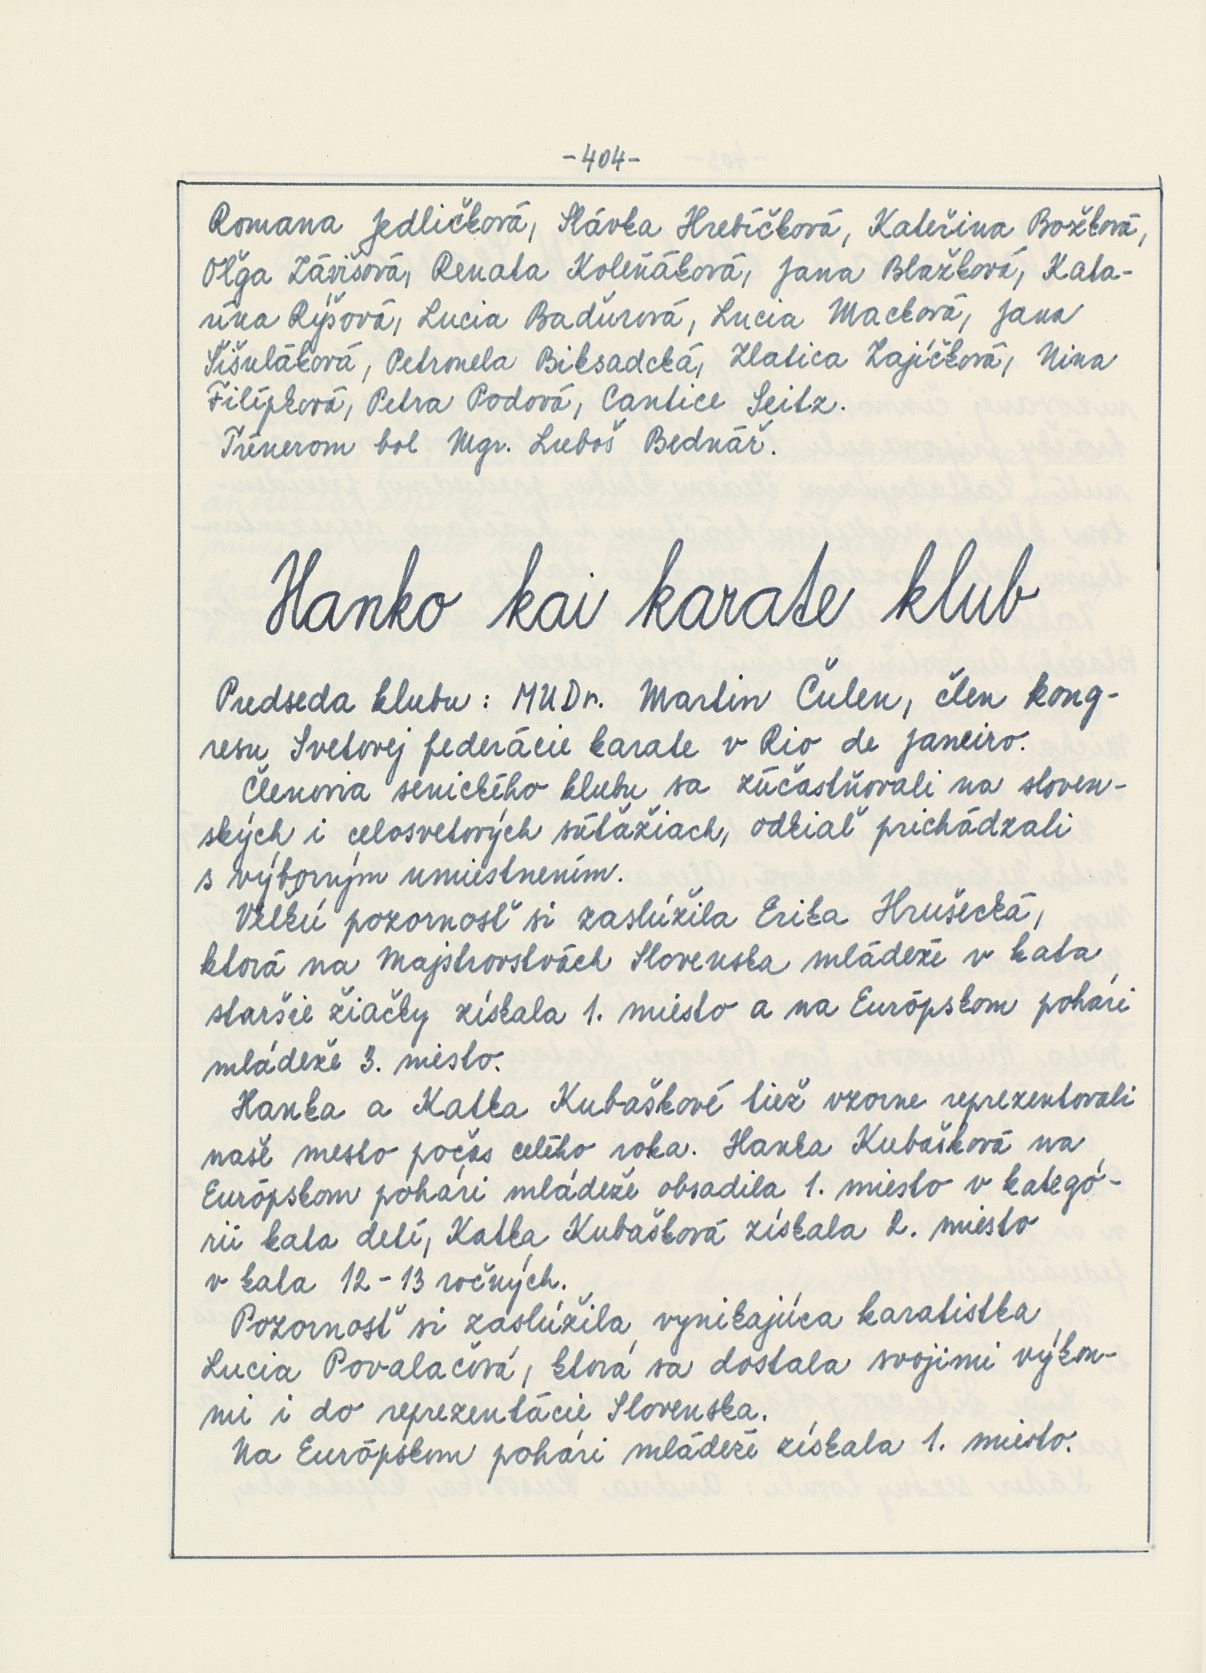 -404-
Romana Jedličková, Slávka Hrebíčková, Kateřina Božková,
Oľga Závišová, Renata Koleňáková, Jana Blažková, Kata-
rína Rýšová, Lucia Baďurová, Lucia Macková, Jana
Šišuláková, Petronela Biksadská, Zlatica Zajíčková, Nina
Filípková, Petra Podová, Cantice Seitz.
Trénerom bol Mgr. Luboš Bednář.
Hanko kai karate klub
Predseda klubu: MUDr. Martin Čulen, člen kong-
resu Svetovej federácie karate v Rio de Janeiro.
Členovia senického klubu sa zúčastňovali na sloven-
ských i celosvetových súťažiach, odkiaľ prichádzali
s výborným umiestnením.
Veľkú pozornosť si zaslúžila Erika Hrušecká,
ktorá na Majstrovstvách Slovenska mládeže v kata
staršie žiačky získala 1. miesto a na Európskom pohári
mládeže 3. miesto.
Hanka a Katka Kubaškové tiež vzorne reprezentovali
naše mesto počas celého roka. Hanka Kubašková na
Európskom pohári mládeže obsadila 1. miesto v kategó-
rii kata detí, Katka Kubašková získala 2. miesto
v kata 12-13 ročných.
Pozornosť si zaslúžila vynikajúca karatistka
Lucia Povalačová, ktorá sa dostala svojimi výkon-
mi i do reprezentácie Slovenska.
Na Európskom pohári mládeže získala 1. miesto.